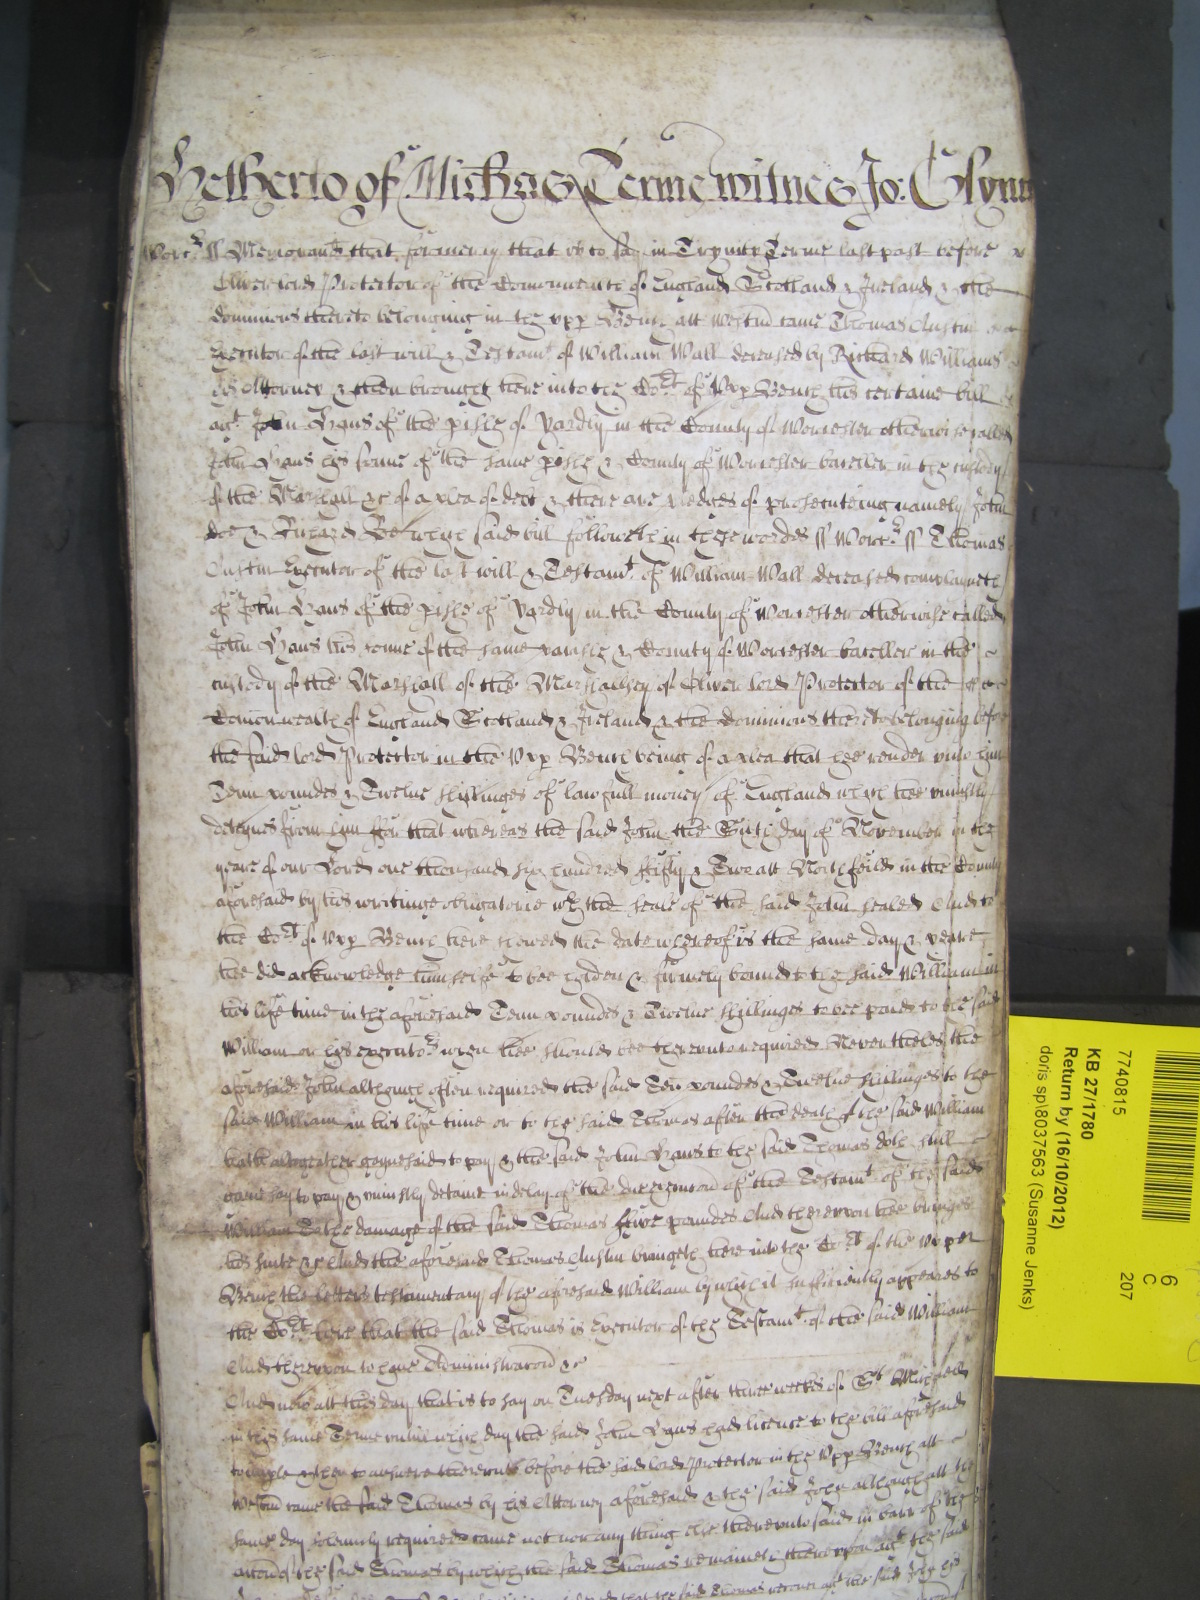 Hetherto of Michas Terme witnes Jo: Glynn
Worc ss Memorand that formerly that is to say in Trynity Terme last past before
Oliver lord Protector of the Comonwealth of England Scotland & Ireland & the
dominions thereto belonging in the upp Bench att Westm came Thomas Austin
Executor of the last will & Testamt of William Wall deceased by Richard Williams
his Attorney & then brought here into the Cort of Upp Bench his certaine bill
agt John Hans of the pishe of Yardly in the County of Worcester otherwise called
John Hans his sonne of the same pishe & County of Worcester in the custody
of the Marshall &c of a plea of debt & there are pledges of prosecuteing namely John
doe & Richard Roe which said bill followeth in these wordes ss Worc ss Thomas
Austin Executor of the last will & Testamt of William Wall deceased complaineth
of John Hans of the pishe of Yardly in the County of Worcester otherwise called
John Hans his sonne of the same parishe & County of Worcester in the
custody of the Marshall of the Marshallsey of Oliver lord Protector of the
Comonwealth of England Scotland & Ireland & the dominions thereto belonging before
the said lord Protector in the Upp Bench being of a plea that hee render unto him
Tenn poundes & Twelve shillinges of lawfull money of England which hee uniustly
deteynes from him ffor that whereas the said John the Sixth day of November in the
yeare of our Lord one thousand six hundred ffifty & Two att Northfeild in the County
aforesaid by his writinge obligatorie wth the seale of the said John sealed And to
the Cort of Upp Bench here shewed the date whereof is the same day & yeare
hee did acknowledge himselfe to bee holden & firmely bound to the said William in
his life time in the aforesaid Tenn poundes & Twelve shillinges to bee paid to the said
William or his executors when hee should bee thereunto required Neverthelesse the
aforesaid John although often required the said Ten poundes & Twelve shillinges to the
said William in his life time or to the said Thomas after the death of the said William
hath altogeather gaynesaid to pay & the said John Hans to the said Thomas doth still
gainesay to pay & uniustly detaine in delay of the due execucon of the Testamt of the said
William To the damage of the said Thomas ffive poundes And thereupon hee bringes
his suite &c And the aforesaid Thomas Austin bringeth here into the Cort of the upper
Bench the letters testamentary of the aforesaid William by which it sufficiently appeares to
the Cort here that the said Thomas is Executor of the Testamt of the said William
And thereupon to have Administracon &c
And now att this day that is to say on Tuesday next after three weekes of St Michaell
in this same Terme untill which day the said John Hans had licence to the bill aforesaid
to imple & then to answere thereunto before the said lord Protector in the Upp Bench att
Westm came the said Thomas by his Attorney aforesaid & the said John although att the
same day solemnly required came not nor any thing else thereunto said in barr of the
accon of the said Thomas by which the said Thomas remaines thereupon agt the said
that the said Thomas recover agt the said John his
7740815
KB 27/1780
Return by (16/10/2012)
doris sp\8037563 (Susanne Jenks)
6
C
207